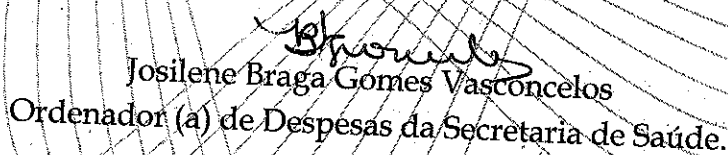 Josilene Braga Gomes Vasconcelos
Ordenador (a) de Despesas da Secretaria de Saúde.